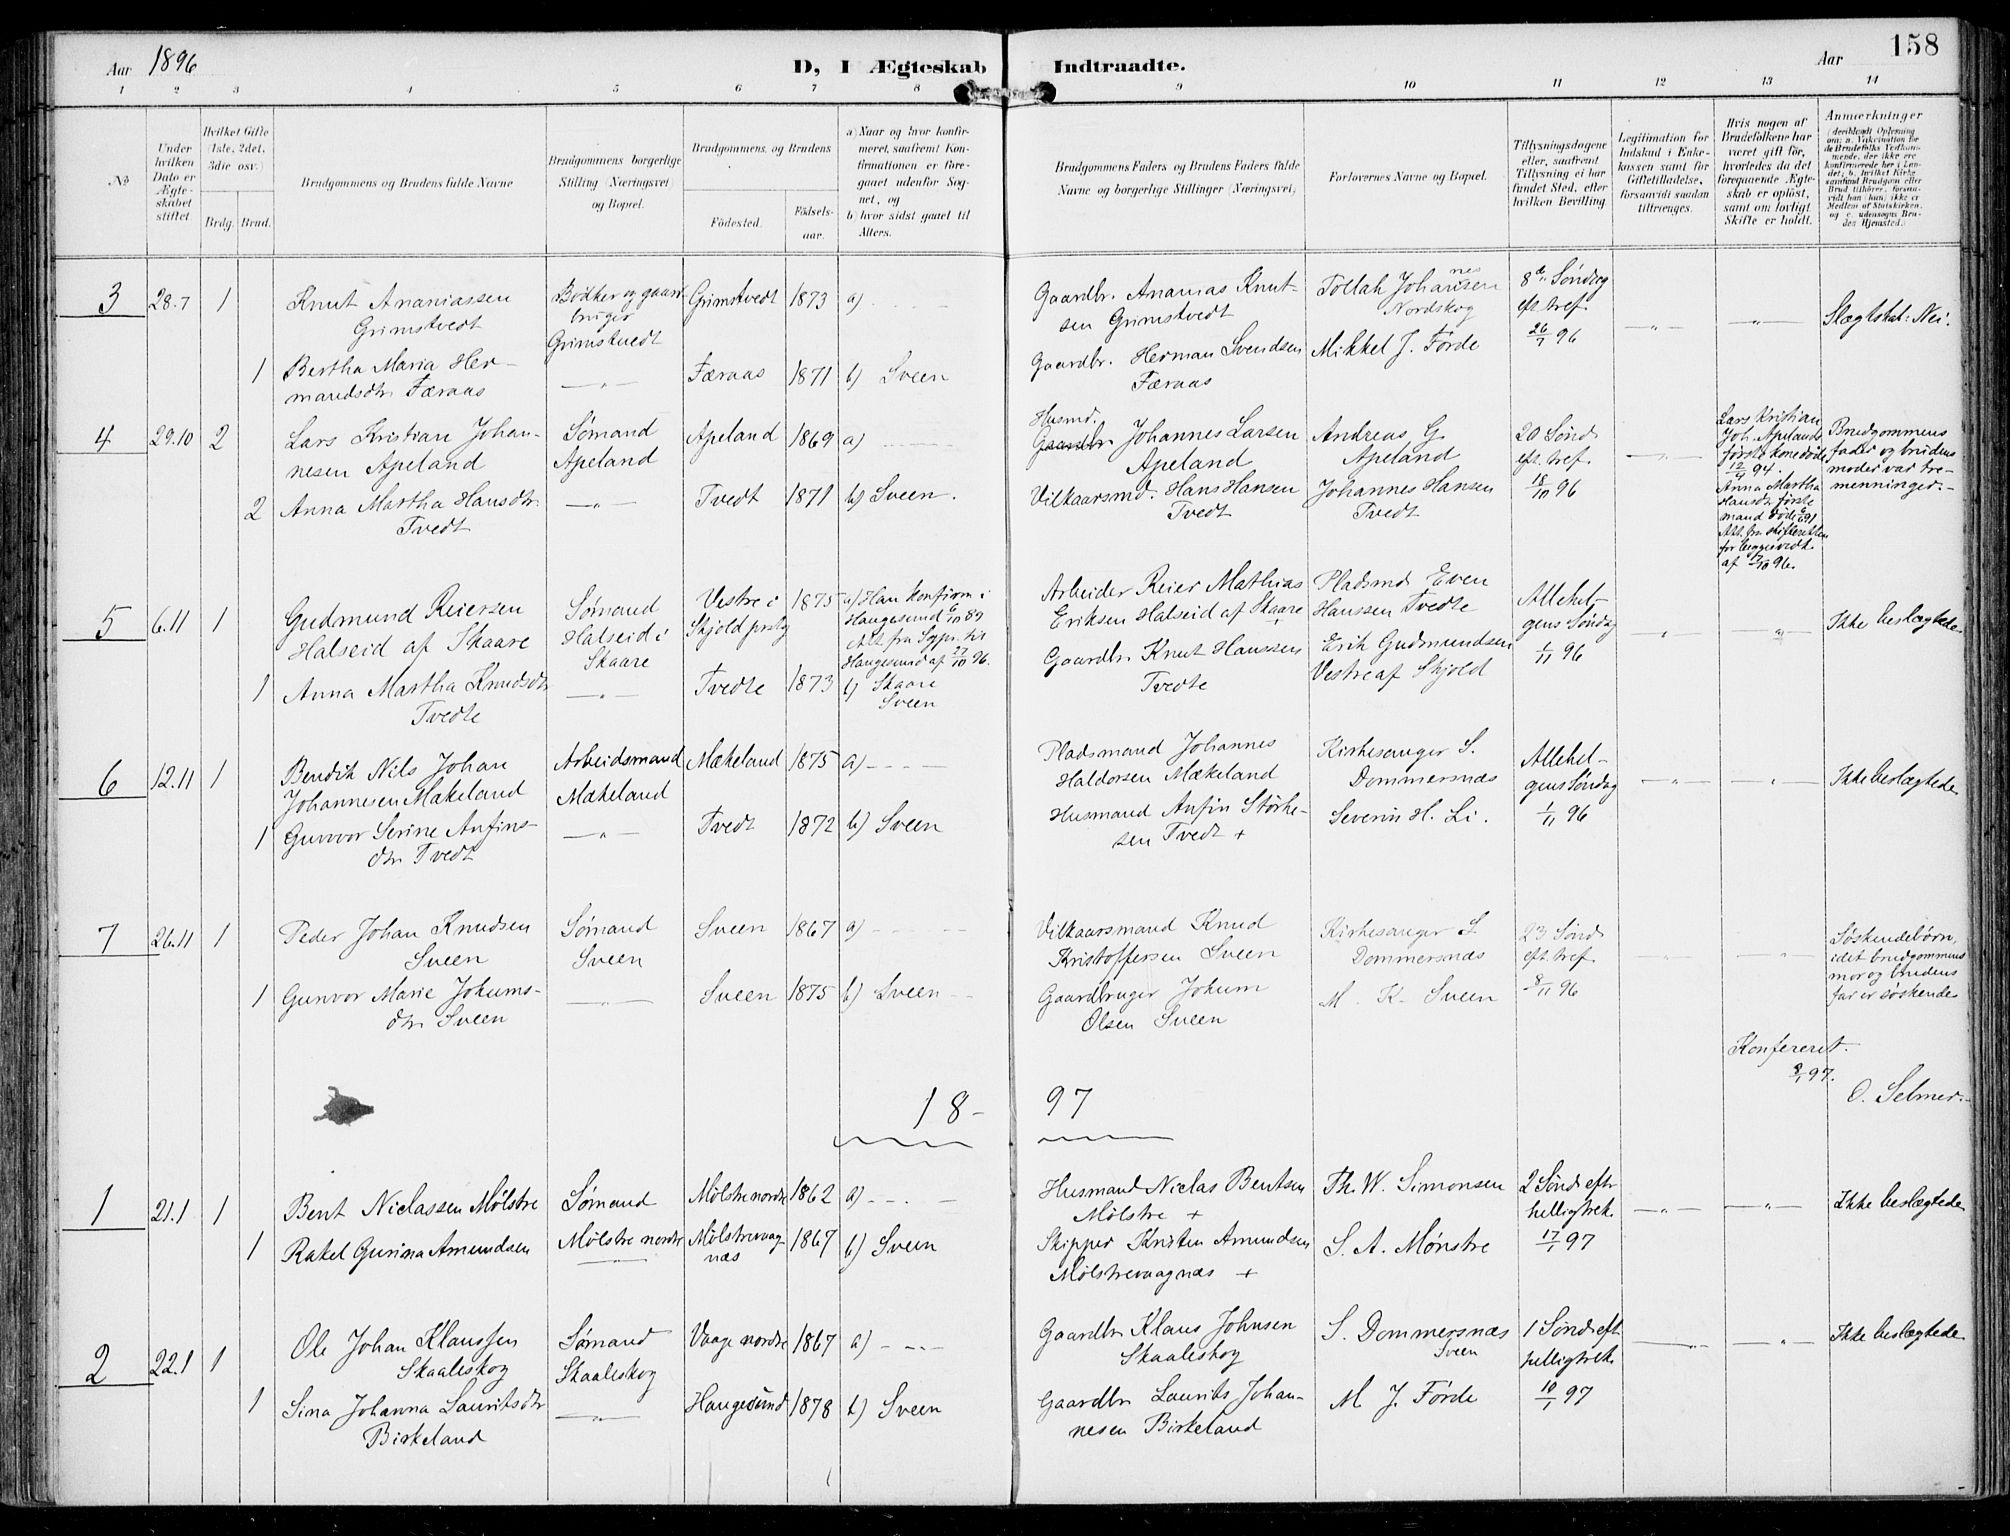 158
Aar 1896
D, I Ægteskab Indtraadte.
Aar
1 2 3 4 5 6 7 8 9 10 11 12 13 14
No
Under hvilken Dato er Ægteskabet stiftet.
Hvilket Gifte (1ste, 2det, 3die osv.)
Brdg. Brud.
Brudgommens og Brudens fulde Navne
Brudgommens borgerlige Stilling (Næringsvei) og Bopæl.
Brudgommens, og Brudens
Födested.
Födselsaar.
a) Naar og hvor konfirmeret, saafremt Konfirmationen er foregaaet udenfor Sognet, og
b) hvor sidst gaaet til Alters.
Brudgommens Faders og Brudens Faders fulde Navne og borgerlige Stillinger (Næringsvei)
Forlovernes Navne og Bopæl.
Tillysningsdagene eller, saafremt Tillysning ei har fundet Sted, efter hvilken Bevilling.
Legitimation for Indskud i Enkekassen samt for Giftetilladelse, forsaavidt saadan tiltrænges.
Hvis nogen af Brudefolkene har været gift för, hvorledes da det foregaaende Ægteskab er oplöst, samt om lovligt Skifte er holdt.
Anmærkninger
3
28.7
1
Knut Ananiassen
Grimstvedt
Bødker og gaardbruger
Grimstvedt
Grimstvedt
1873
a)
Gaardbr. Ananias Knutsen Grimstvedt
Tollak Johannesen
Nordskog
8de Søndag
eft. tref.
26/7 96
Slægtskab: Nei.
1
Bertha Maria Hermandsdtr. Færaas
Færaas
1871
b) Sveen
Gaardbr. Herman Svendsen
Færaas
Mikkel J. Førde
4
29.10
2
Lars Kristian Johannesen Apeland
Sømand
Apeland
Apeland
1869
a)
Husmd.
Gaardbr. Johannes Larsen
Apeland
Andreas G.
Apeland
20 Sønd.
eft. tref.
18/10 96
Lars Kristian
Joh. Apelands
første kone døde
12/4 94.
Anna Martha
Hansdtr. første
mand døde 6/6 91
Att. fra skifteretten
for begge vedk.
af /10 96.
Brudgommens
fader og brudens
moder var tremenninger.
2
Anna Martha Hansdtr.
Tvedt
Tvedt
1871
b) Sveen.
Vilkaarsmd. Hans Hansen
Tvedt
Johannes Hansen
Tvedt
5
6.11
1
Gudmund Reiersen
Halseid af Skaare
Sømand
Halseid i
Skaare
Vestre i
Skjold prstg
1875
a) Han konfirm. i
Haugesund 6/10 89
Att. fra Sgpr. til
Haugesund af 27/10 96.
Arbeider Reier Mathias
Eriksen Halseid af Skaare
Pladsmd Even
Hanssen Tvedte
Allehelgens Søndag
1/11 96
Ikke beslægtede
1
Anna Martha Knudsdtr
Tvedte
Tvedte
1873
b) Skaare
Sveen
Gaardbr. Knut Hanssen
Tvedte
Erik Gudmundsen
Vestre af Skjold
6
12.11
1
Bendik Nils Johan
Johannesen Mækeland
Arbeidsmand
Mækeland
Mækeland
1875
a)
Pladsmand Johannes
Haldorsen Mækeland
Kirkesanger S.
Dommersnæs
Allehelgens Søndag
1/11 96
Ikke beslægtede
1
Gunvor Serine Anfinsdtr. Tvedt
Tvedt
1872
b) Sveen
Husmand Anfin Størkesen Tvedt +
Severin H. Li.
7
26.11
1
Peder Johan Knudsen
Sveen
Sømand
Sveen
Sveen
1867
a)
Vilkaarsmand Knud
Kristoffersen Sveen
Kirkesanger S.
Dommersnæs
23 Sønd.
eft. tref.
8/11 96
Søskendebørn,
idet brudgommens
mor og brudens
far er søskende
1
Gunvor Marie Jokumsdtr. Sveen
Sveen
1875
b) Sveen
Gaardbruger Jokum
Olsen Sveen
M. K. Sveen
Konfereret.
8/1 97.
O. Selmer.
18- 97
1
21.1
1
Bent Niclassen Mølstre
Sømand
Mølstre nordre
Mølstre nordre
1862
a)
Husmand Niclas Bentsen
Mølstre +
Th. W. Simonsen
2 Sønd. eftr
helligtrek.
17/1 97
Ikke beslægtede
1
Rakel Gurina Amundsen
Mølstrevaagnæs
1867
b) Sveen
Skipper Kristen Amundsen
Mølstrevaagnæs +
S. A. Mønstre
2
22.1
1
Ole Johan Klaussen
Skaaleskog
Sømand
Skaaleskog
Vaage nordre
1867
a)
Gaardbr Klaus Johnsen
Skaaleskog
S. Dommersnæs
Sveen
1 Sønd. eft
helligtrek.
10/1 97
Ikke beslægtede
1
Sina Johanna Lauritsdtr
Birkeland
Haugesund
1878
b) Sveen
Gaardbr Laurits Johannesen Birkeland
M. J. Førde